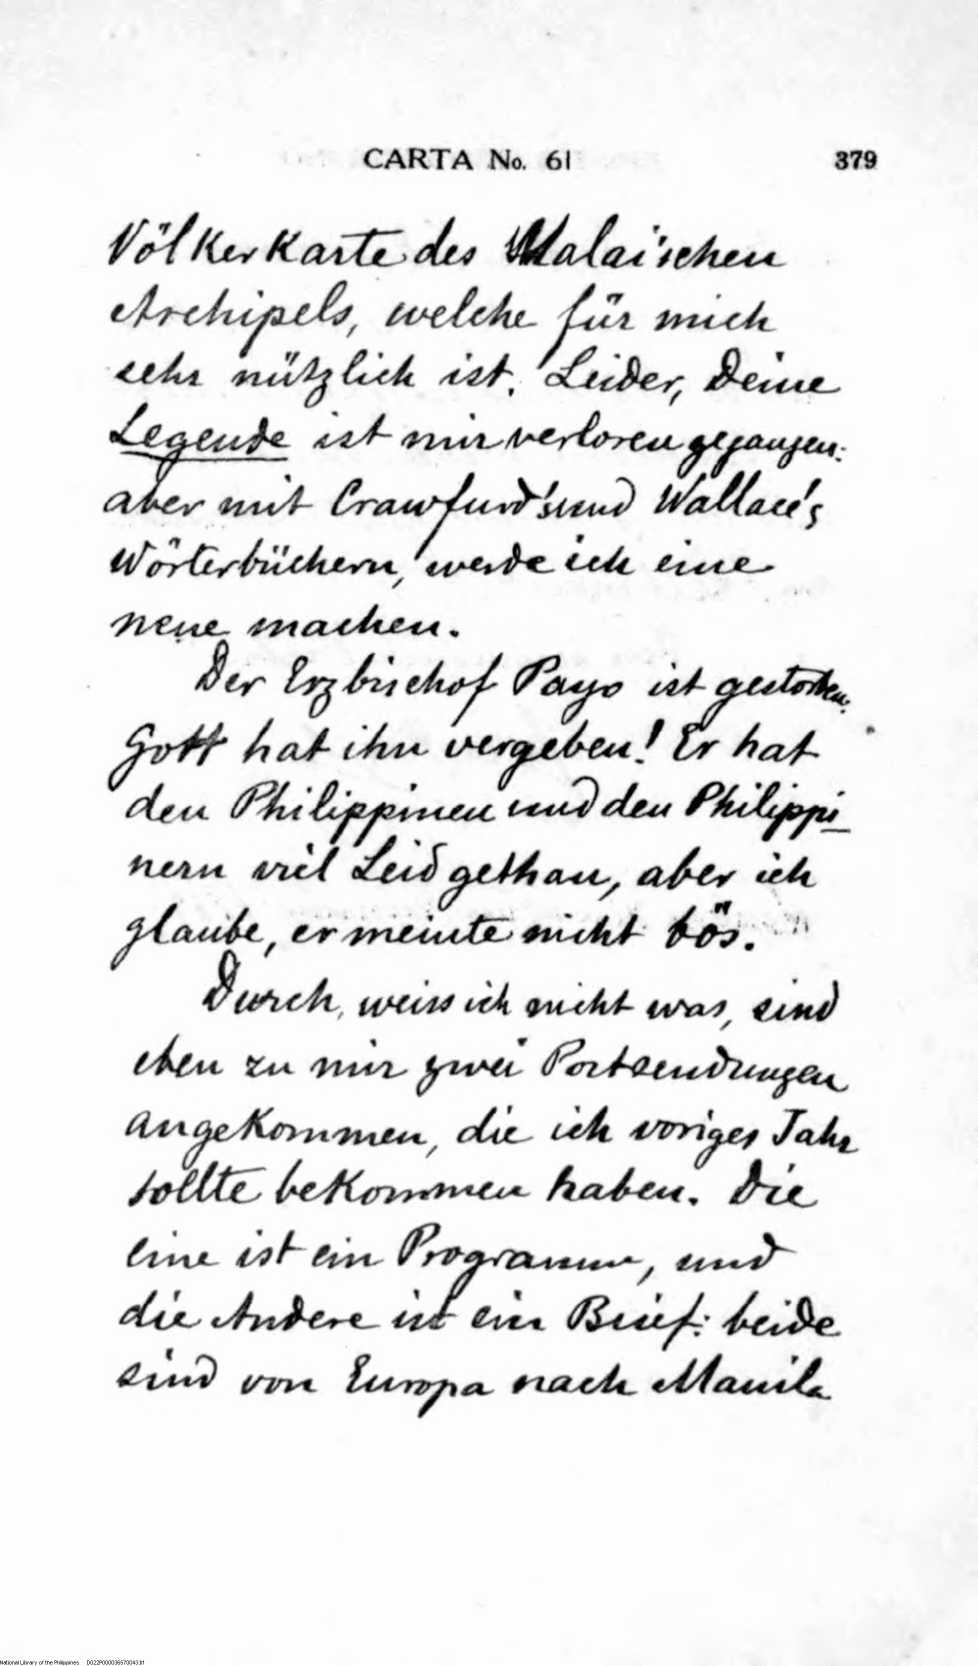 CARTA No. 61 379
Völkerkarte des Malaischen
Archipels, welche für mich
sehr nützlich ist. Leider, Deine
Legende ist mir verloren gegangen:
aber mit Crawfurd's und Wallace's
Wörterbüchern, werde ich eine
neue machen.
Der Erzbischof Payo ist gestorben.
Gott hat ihn vergeben! Er hat
den Philippinen und den Philippi-
nern viel Leid gethan, aber ich
glaube, er meinte nicht bös.
Durch, weiss ich nicht was, sind
eben zu mir zwei Postsendungen
angekommen, die ich voriges Jahr
sollte bekommen haben. Die
eine ist ein Programm, und
die Andere ist ein Brief: beide
sind von Europa nach Manila
National Library of the Philippines